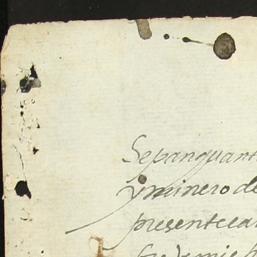 Sepanquant
y minero de
presentecar